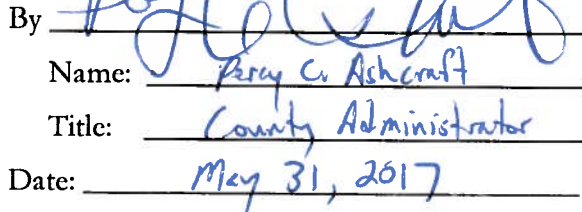 By
Name: Percy C. Ashcraft
Title: County Administrator
Date: May 31, 2017